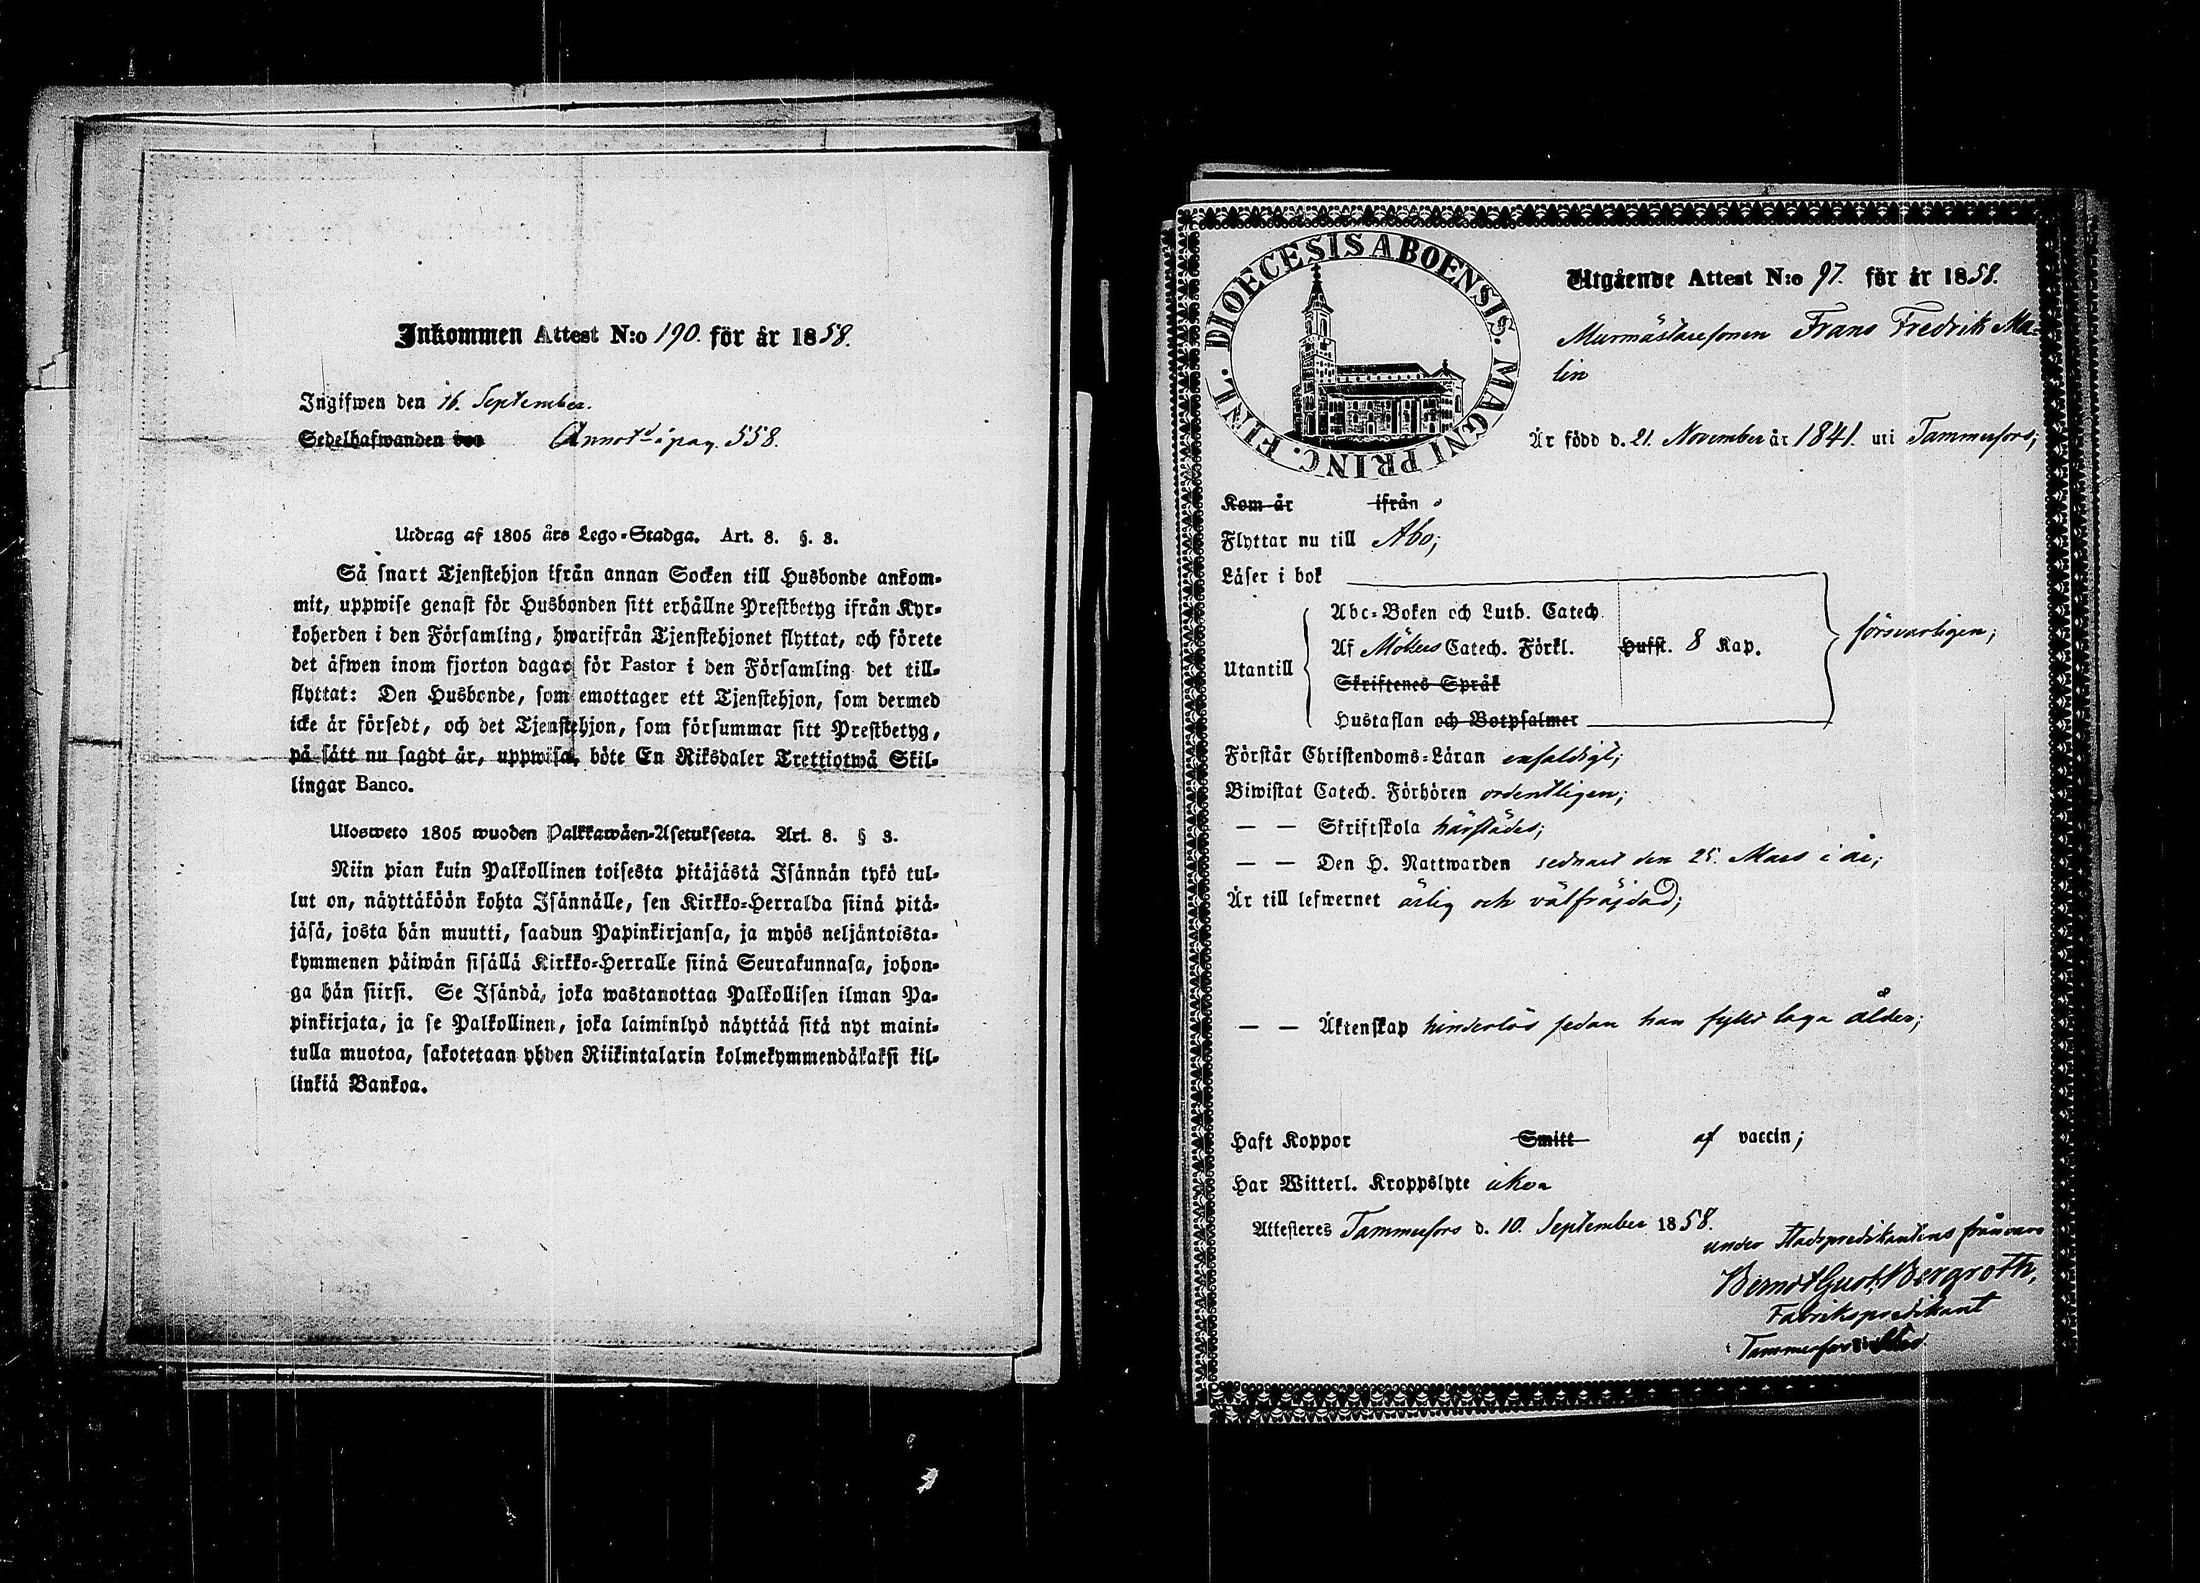 Inkommen Attest N:o 190. för år 1858.
Ingifwen den 16. September.
Sedelhafwanden bor Annotd i pag. 558.
Utdrag af 1805 års Lego-Stadga. Art. 8. §. 3.
Så snart Tjenstehjon ifrån annan Socken till Husbonde ankom-
mit, uppwise genast för Husbonden sitt erhållne Prestbetyg ifrån Kyr-
koherden i den Församling, hwarifrån Tjenstehjonet flyttat, och förete
det äfwen inom fjorton dagar för Pastor i den Församling det till-
flyttat: Den Husbonde, som emottager ett Tjenstehjon, som dermed
icke är försedt, och det Tjenstehjon, som försummar sitt Prestbetyg,
på sätt nu sagdt är, uppwisa, böte En Riksdaler Trettiotwå Skil-
lingar Banco.
Ulosweto 1805 wuoden Palkkawäen-Asetuksesta. Art. 8. § 3.
Niin pian kuin Palkollinen toisesta pitäjästä Isännän tykö tul-
lut on, näyttäköön kohta Isännälle, sen Kirkko-Herralda siinä pitä-
jäsä, josta hän muutti, saadun Papinkirjansa, ja myös neljäntoista-
kymmenen päiwän sisällä Kirkko-Herralle siinä Seurakunnasa, johon-
ga hän siirsi. Se Isändä, joka wastanottaa Palkollisen ilman Pa-
pinkirjata, ja se Palkollinen, joka laiminlyö näyttää sitä nyt maini-
tulla muotoa, sakotetaan yhden Riikintalarin kolmekymmendäkaksi kil-
linkiä Bankoa.
DIOECESIS ABOENSIS. MAGNI PRINC. FINL.
Utgående Attest N:o 97. för år 1858.
Murmästaresonen Frans Fredrik Ma-
lin
Är född d. 21. November år 1841. uti Tammerfors;
Kom år ifrån
Flyttar nu till Åbo;
Läser i bok
Abc-Boken och Luth. Catech.
Utantill
Af Möllers Catech. Förkl. Hufst. 8 Kap.
försvarligen;
Skriftenes Språk
Hustaflan och Botpsalmer
Förstår Christendoms-Läran enfaldigt;
Biwistat Catech. Förhören ordentligen;
— — Skriftskola härstädes;
— — Den H. Nattwarden sednast den 25. Mars i år;
Är till lefwernet ärlig och välfräjdad;
— — Äktenskap hinderlös sedan han fylld laga ålder;
Haft Koppor Smitt af vaccin;
Har Witterl. Kroppslyte icke
Attesteres Tammerfors d. 10. September 1858.
under Stadspredikantens frånvaro
Berndt Gust. Bergroth,
Fabrikspredikant
Tammerfors